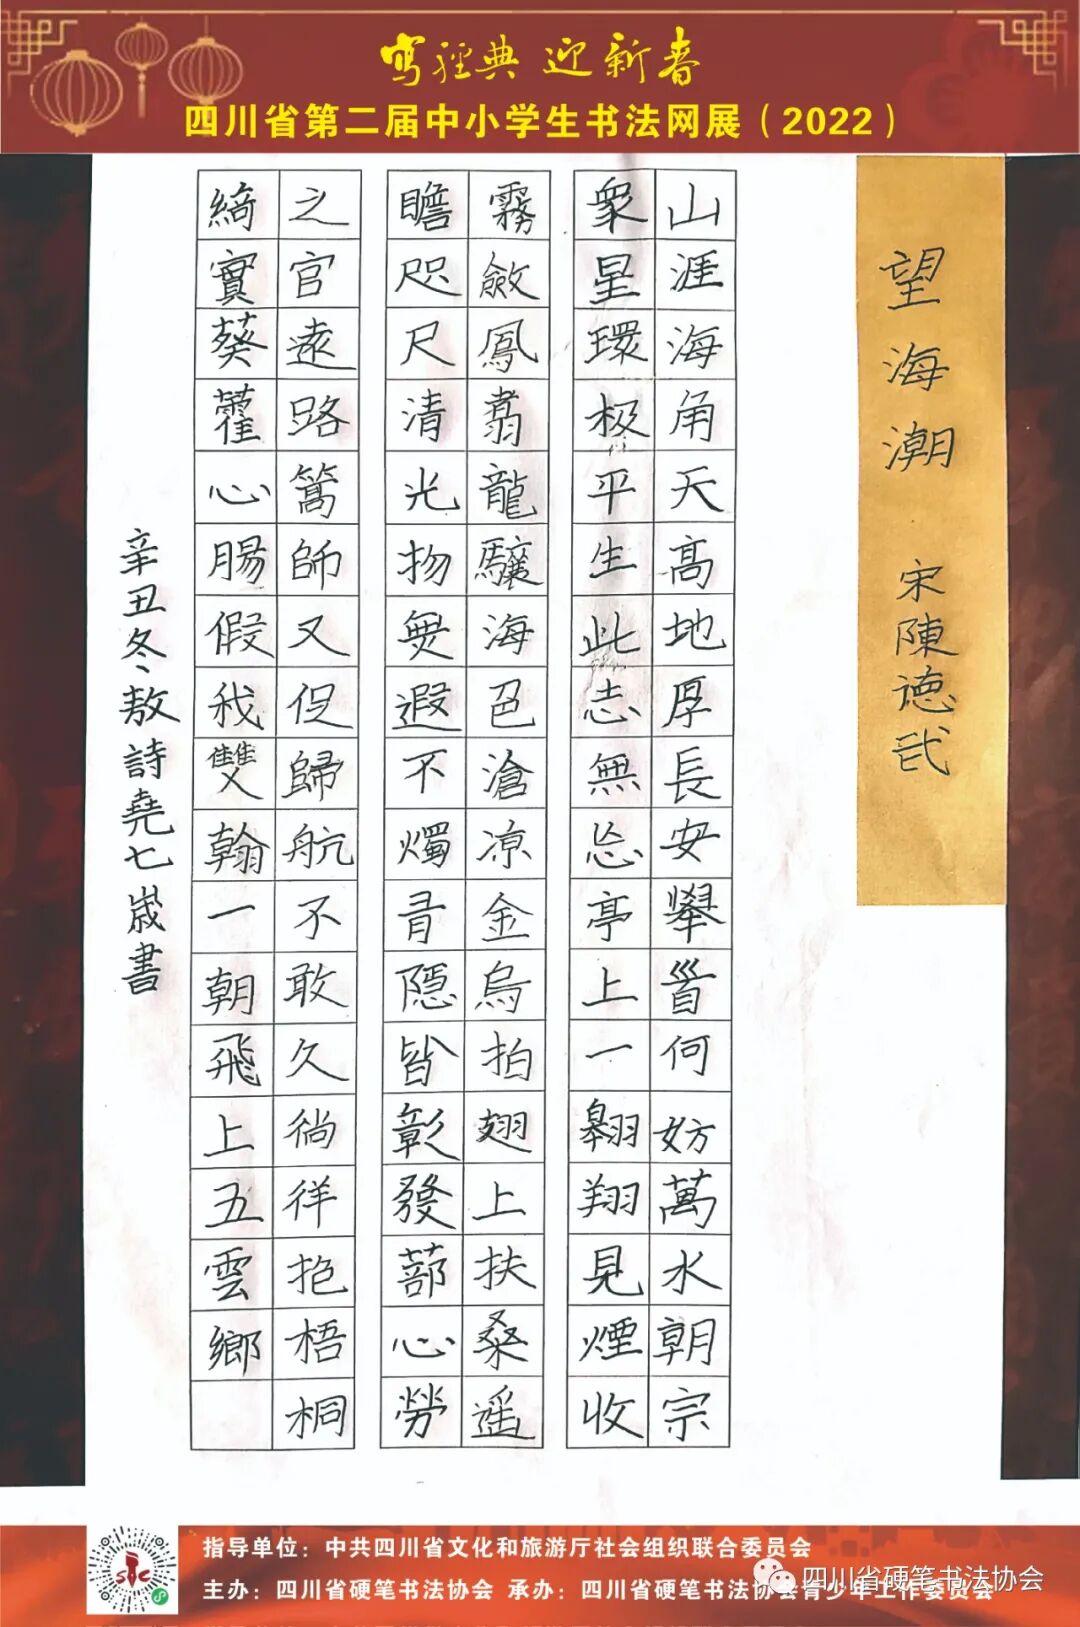 写经典 迎新春
四川省第二届中小学生书法网展（2022）
望海潮 宋陳德武
山涯海角天高地厚長安舉首何妨萬水朝宗
衆星環极平生此志無忘亭上一翱翔見煙收
霧斂鳳翥龍驤海邑滄凉金烏拍翅上扶桑遥
瞻咫尺清光物無遐不燭昔隱皆彰發蔀心勞
之官遠路篙師又促歸航不敢久徜徉抱梧桐
綺實葵藿心賜假我雙翰一朝飛上五雲鄉
辛丑冬敖詩堯七歲書
指导单位：中共四川省文化和旅游厅社会组织联合委员会
主办：四川省硬笔书法协会 承办：四川省硬笔书法协会青少年工作委员会
四川省硬笔书法协会